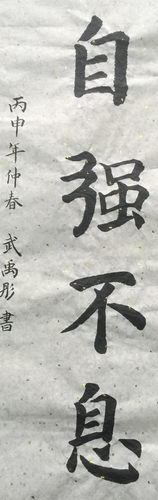 自强不息
丙申年仲春 武禹彤書